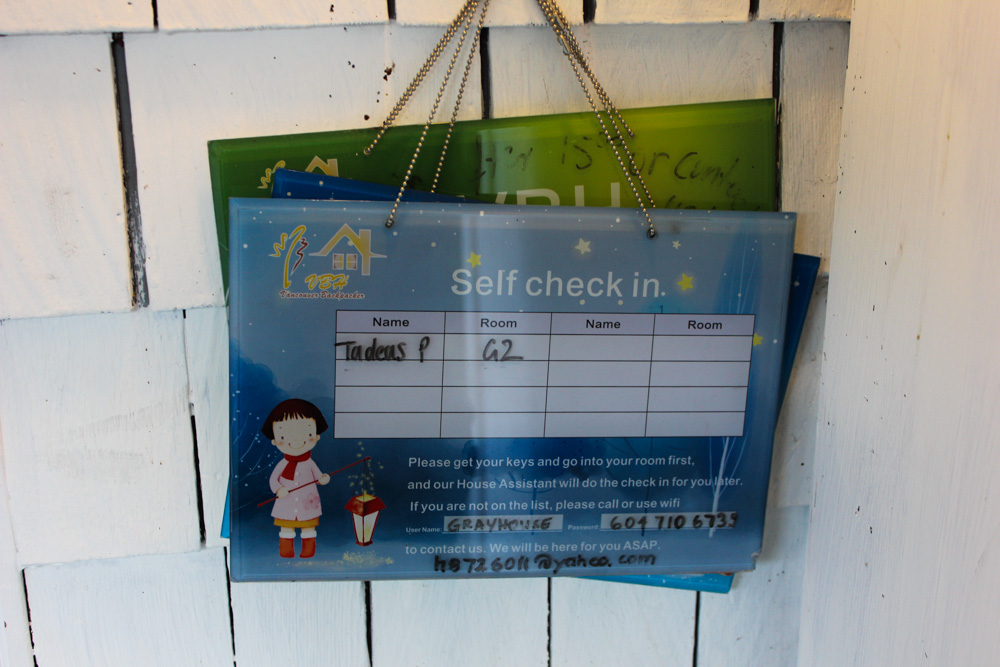 15
VBH
VBH
Vancouver Backpacker
Self check in
Name Room Name Room
Tadeas P G2
Please get your keys and go into your room first,
and our House Assistant will do the check in for you later.
If you are not on the list, please call or use wifi
User Name: GRAYHOUSE Password: 604 710 6739
to contact us. We will be here for you ASAP.
h8726011@yahoo.com